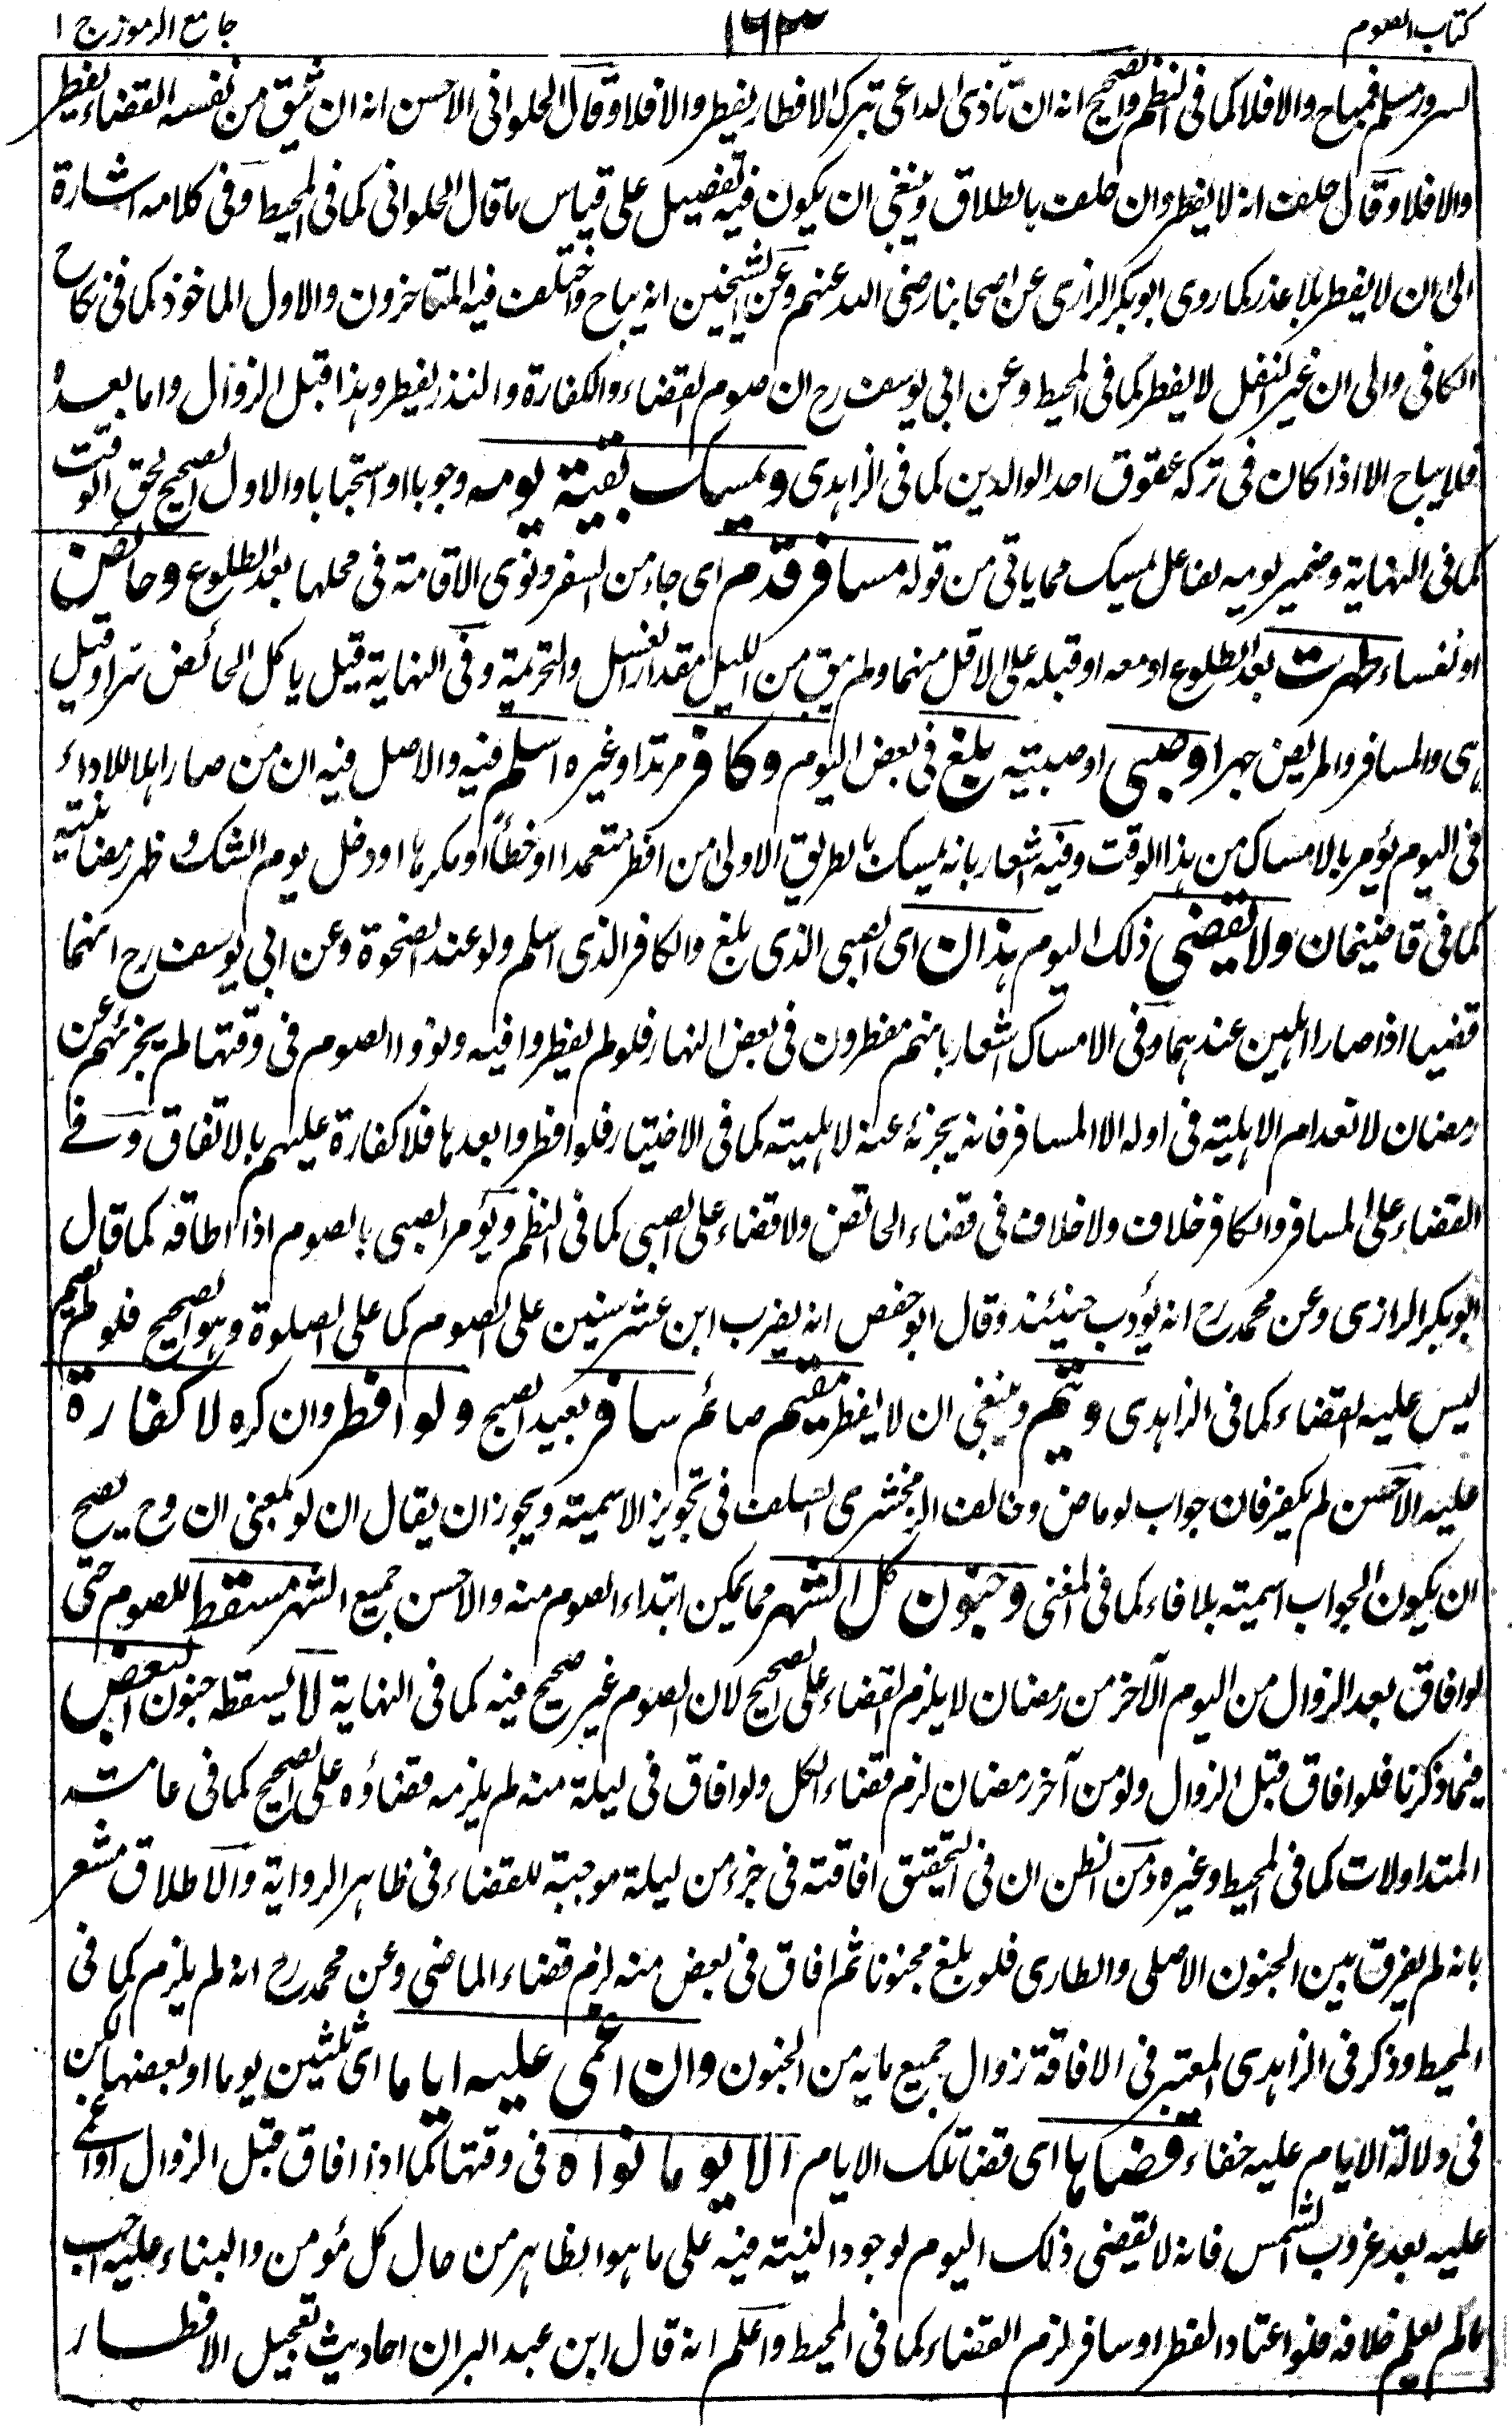 كتاب الصوم ١٦٣ جامع الرموز ج ١
لسرور مسلم فمباح والا فلا كما فى النظم والصحيح انه ان تأذى الداعى بترك الافطار يفطر والا فلا وقال الحلوانى الاحسن انه ان يثق من نفسه القضاء يفطر
والا فلا وقال حلف انه لا يفطر وان حلف بالطلاق وينبغى ان يكون فيه تفصيل على قياس ما قال الحلوانى كما فى المحيط وفى كلامه اشارة
الى ان لا يفطر بلا عذر كما روى ابو بكر الرازى عن اصحابنا رضى الله عنهم وعن الشيخين انه يباح واختلف فيه المتأخرون والاول الماخوذ كما فى نكاح
الكافى والى ان غير النفل لا يفطر كما فى المحيط وعن ابى يوسف رح ان صوم القضاء والكفارة والنذر يفطر وهذا قبل الزوال واما بعده
فلا يباح الا اذا كان فى تركه عقوق احد الوالدين كما فى الزاهدى ويمسك بقية يومه وجوبا او استحبابا والاول الصحيح لحق الوقت
كما فى النهاية وضمير يومه لفاعل يمسك مما ياتى من قوله مسافر قدم اى جاء من السفر ونوى الاقامة فى محلها بعد الطلوع وحائض
او نفساء طهرت بعد الطلوع او معه او قبله على الاقل منهما ولم يبق من الليل مقدار الغسل والتحريمة وفى النهاية قيل ياكل الحائض سرا وقيل
هى والمسافر والمريض جهرا وصبى او صبية بلغ فى بعض اليوم وكافر مرتد او غيره اسلم فيه والاصل فيه ان من صار اهلا للاداء
فى اليوم يؤمر بالامساك من هذا الوقت وفيه اشعار بانه يمسك بالطريق الاولى من افطر متعمدا او خطأ او مكرها او دخل يوم الشك وظهر رمضانيته
كما فى قاضيخان ولا يقضى ذلك اليوم هذان اى الصبى الذى بلغ والكافر الذى اسلم ولو عند الضحوة وعن ابى يوسف رح انهما
قضيا اذا صارا اهلين عندهما وفى الامساك اشعار بانهم مفطرون فى بعض النهار فلو لم يفطروا فيه ونووا الصوم فى وقتها لم يجزئهم عن
رمضان لانعدام الاهلية فى اوله الا المسافر فانه يجزئه عنه لاهليته كما فى الاختيار فلو افطروا بعدها فلا كفارة عليهم بالاتفاق وفى
القضاء على المسافر والكافر خلاف ولا خلاف فى قضاء الحائض ولا قضاء على الصبى كما فى النظم ويؤمر الصبى بالصوم اذا اطاقه كما قال
ابو بكر الرازى وعن محمد رح انه يؤدب حينئذ وقال ابو حفص انه يضرب ابن عشر سنين على الصوم كما على الصلوة وهو الصحيح فلو لم يصم
ليس عليه القضاء كما فى الزاهدى ويتم وينبغى ان لا يفطر مقيم صائم سافر بعيد الصبح ولو افطر وان كره لا كفارة
عليه الاحسن لم يكفر فان جواب لو ماض وخالف الزمخشرى السلف فى تجويز الاسمية ويجوز ان يقال ان لو بمعنى ان وح يصح
ان يكون الجواب اسمية بلا فاء كما فى المغنى وجنون كل الشهر مما يمكن ابتداء الصوم منه والاحسن جميع الشهر مسقط للصوم حتى
لو افاق بعد الزوال من اليوم الآخر من رمضان لا يلزم القضاء على الصحيح لان الصوم غير صحيح فيه كما فى النهاية لا يسقطه جنون البعض
فيما ذكرنا فلو افاق قبل الزوال ولو من آخر رمضان لزم قضاء الكل ولو افاق فى ليلة منه لم يلزمه قضاؤه على الصحيح كما فى عامة
المتداولات كما فى المحيط وغيره ومن الظن ان فى التحقيق افاقته فى جزء من ليلة موجبة للقضاء فى ظاهر الرواية والاطلاق مشعر
بانه لم يفرق بين الجنون الاصلى والطارى فلو بلغ مجنونا ثم افاق فى بعض منه لزم قضاء الماضى وعن محمد رح انه لم يلزم كما فى
المحيط وذكر فى الزاهدى المعتبر فى الافاقة زوال جميع ما به من الجنون وان اغمى عليه اياما اى ثلثين يوما او بعضها لكن
فى دلالة الايام عليه خفاء قضاها اى قضا تلك الايام الا يوما نواه فى وقتها كما اذا افاق قبل الزوال او اغمى
عليه بعد غروب الشمس فانه لا يقضى ذلك اليوم لوجود النية فيه على ما هو الظاهر من حال كل مؤمن والبناء عليه احب
ما لم يعلم خلافه فلو اعتاد الفطر او سافر لزم القضاء كما فى المحيط واعلم انه قال ابن عبد البر ان احاديث تعجيل الافطار